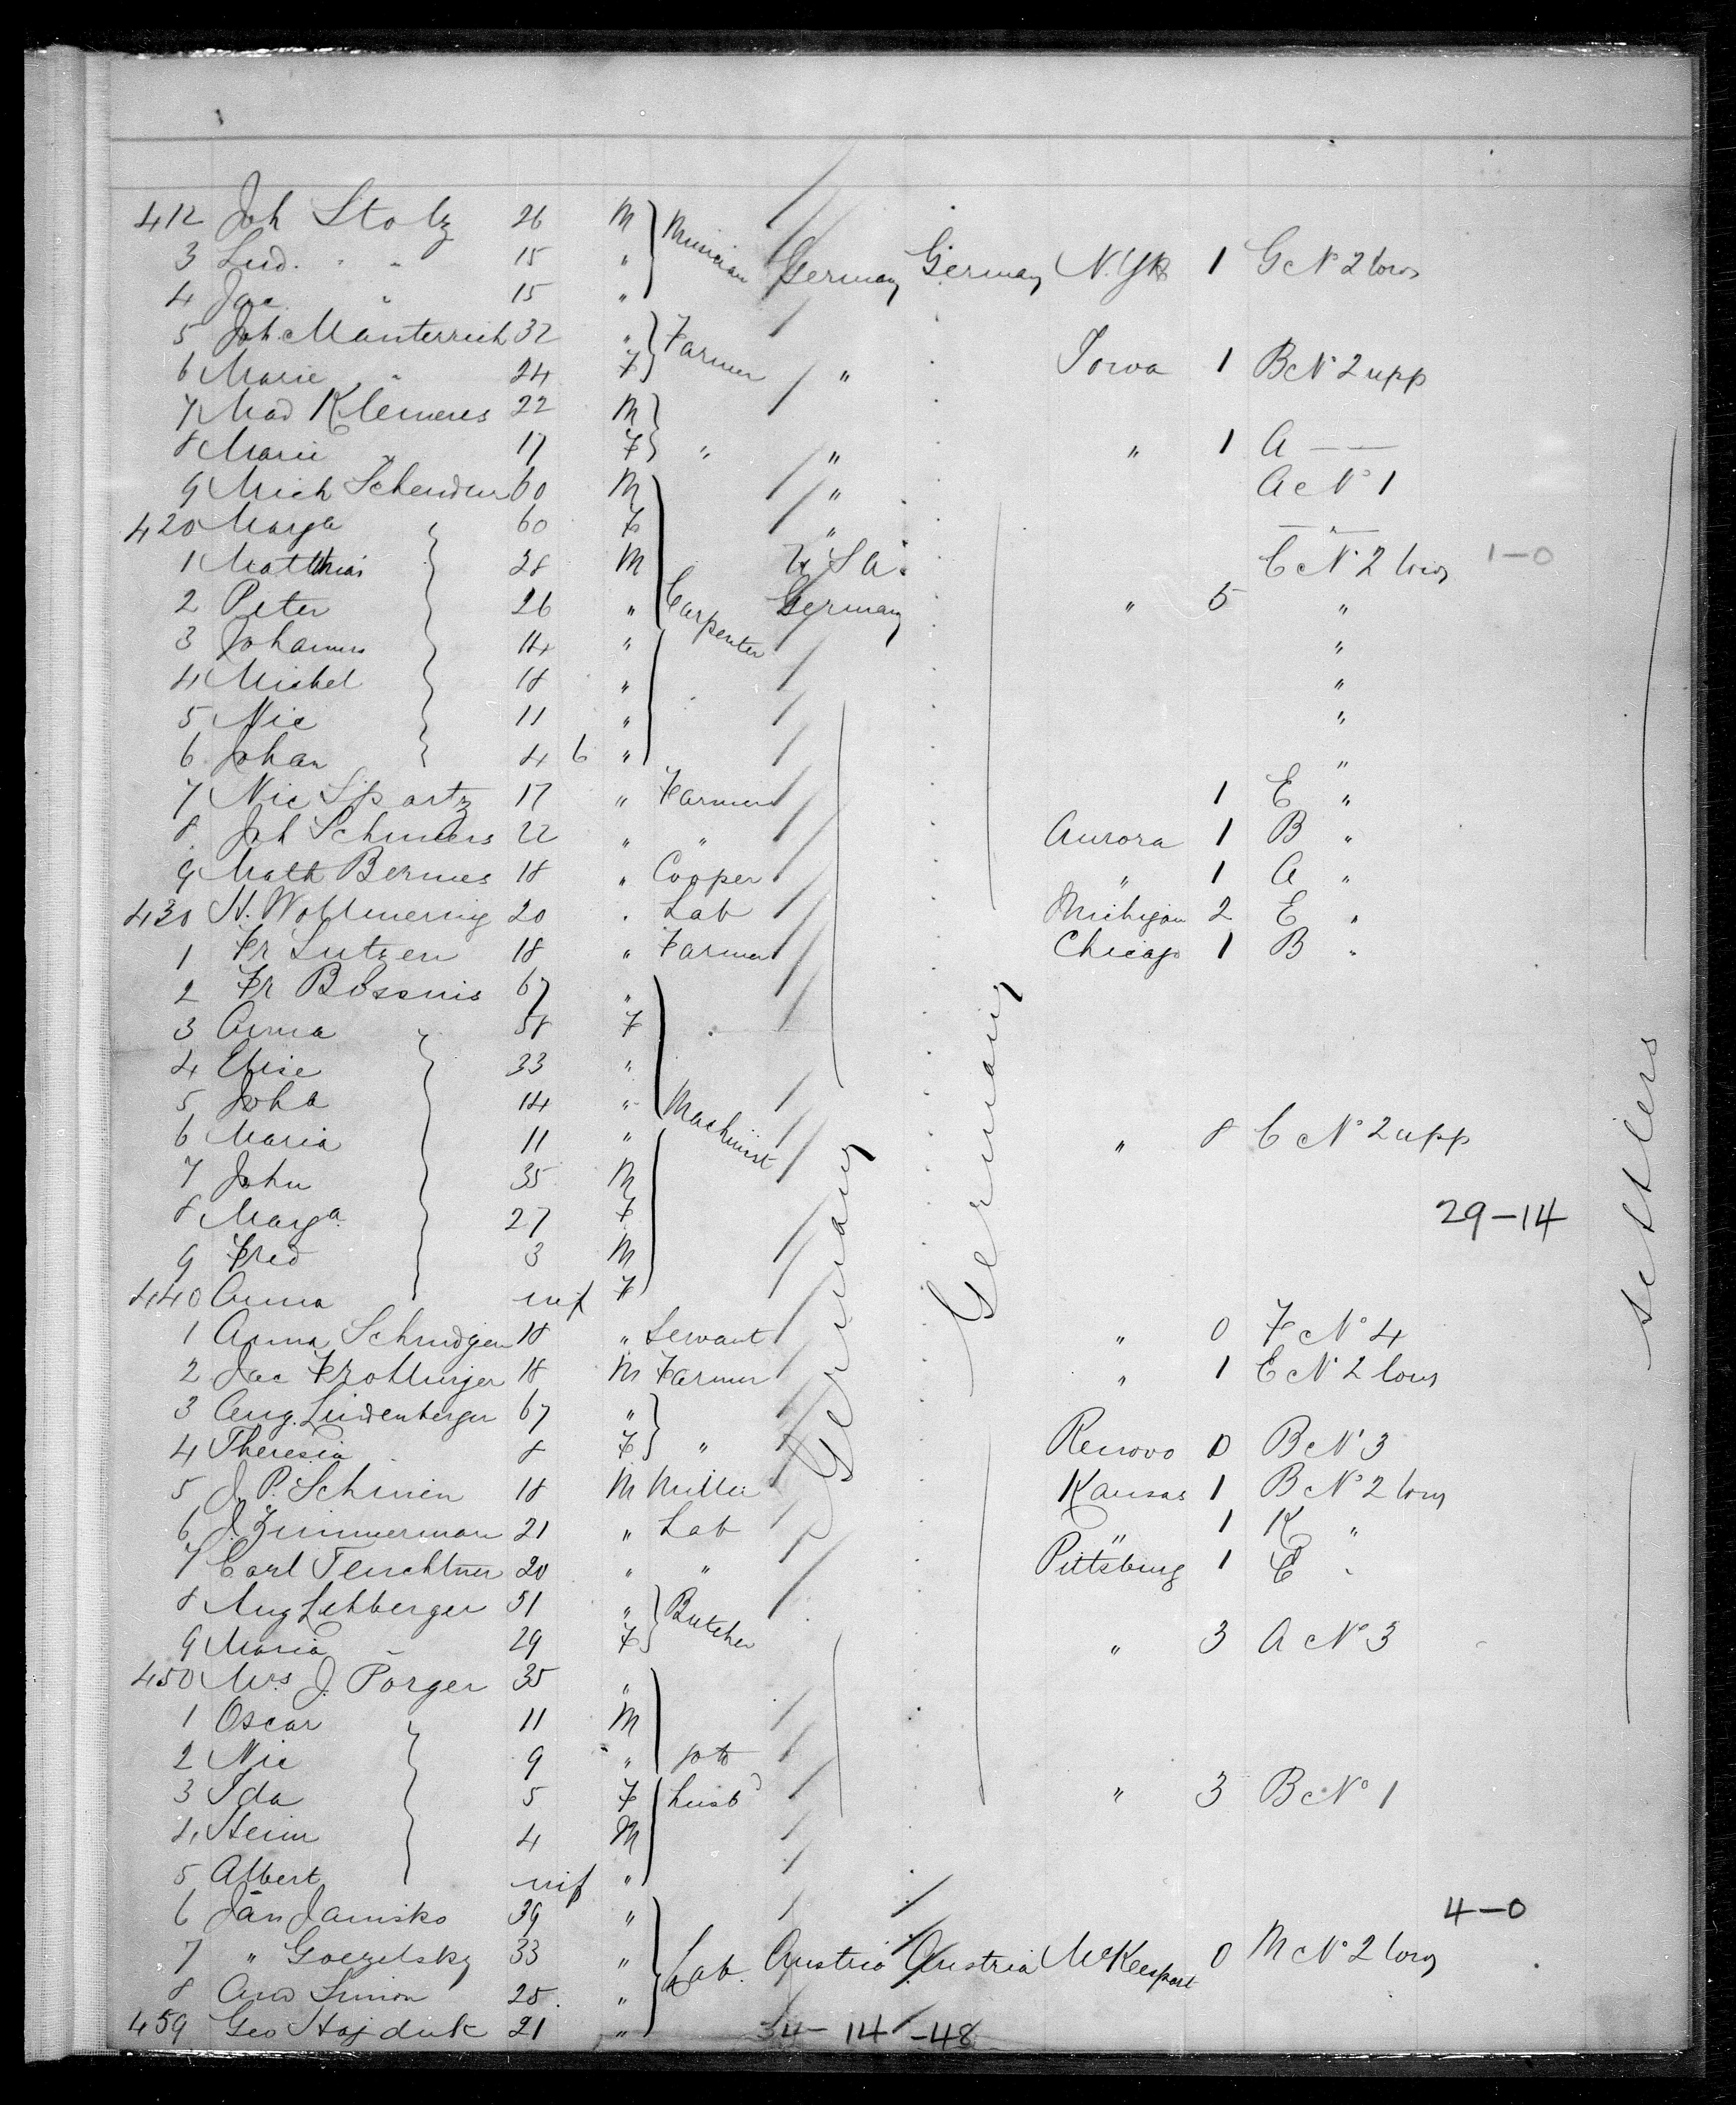 412 Joh Stolz 26 M Musician Germany Germany N.Yk 1 G No 2 low
3 Lud. " " 15 "
4 Jac " 15 "
5 Joh. Manterrich 32 " Farmer
6 Marie " 24 F " Iowa 1 B No 2 upp
7 Mad Klemeres 22 M
8 Marie " 17 F " " " 1 A —
9 Mich 60 M " A No 1
420 Marga " 60 F " — " —
1 Matthias 28 M U S A. C No 2 low 1-0
2 Peter 26 " Carpenter Germany " 5 "
3 Johannes 14 " "
4 Michel 18 " "
5 Nic 11 " "
6 Johan 4 6 " "
7 Nic Spartz 17 " Farmer 1 E "
8 Joh Schmers 22 " " Aurora 1 B "
9 Math Bermes 18 " Cooper " 1 A "
430 N. Wollmering 20 " Lab Michigan 2 E "
1 Fr Lutzen 18 " Farmer Chicago 1 B "
2 Fr Bossnis 67 "
3 Anna " 58 F
4 Elise 33 "
5 Joha 14 " Machinist
6 Maria 11 " " 8 C No 2 upp
7 John 35 M
8 Marga 27 F 29-14
9 Fred 3 M
440 Anna inf F
Germany
Germany
settlers
1 Anna Schmidgen 18 " Servant " 0 F No 4
2 Jac Frollinger 18 M Farmer " 1 E No 2 low
3 Aug. Lindenberger 67 "
4 Theresia 8 F " Renovo 0 B No 3
5 J. P. Schmien 18 M Miller Kansas 1 B No 2 low
6 J. Zimmerman 21 " Lab " 1 K "
7 Carl Teuchtner 20 " " Pittsburg 1 E "
8 Aug Lehberger 51 " Butcher
9 Maria " 29 F " 3 A No 3
450 Mrs J. Porger 35 "
1 Oscar 11 M
2 Nic 9 " jo to
3 Ida 5 F husbd " 3 B No 1
4 Heinr 4 M
5 Albert inf "
6 Ján Jamisko 39 " 4-0
7 " Goezelsky 33 " Lab. Austria Austria McKeesport 0 M No 2 low
8 And Simon 25 "
459 Geo Hajduk 21 " 34-14-48